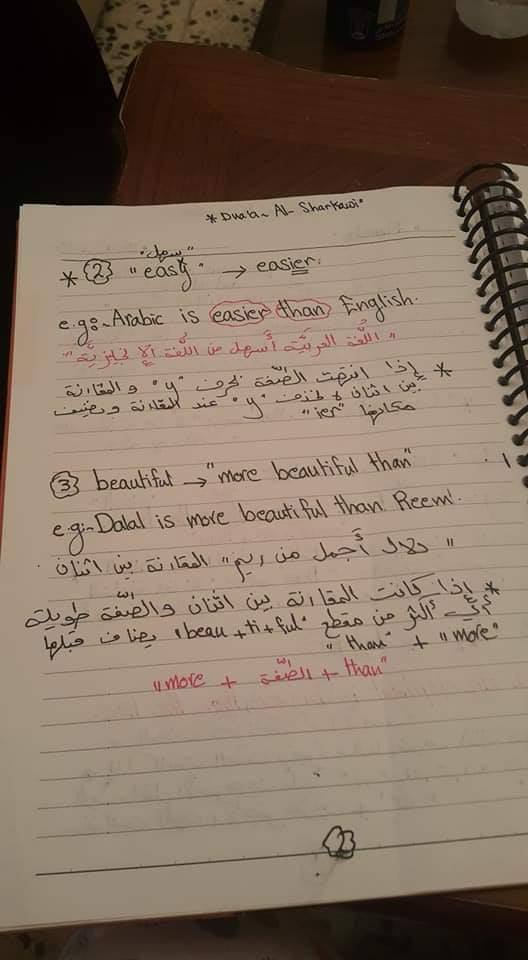 * Duaa~ Al- Sharkawi*
"سهل"
* ② "easy" → easier.
e.g:~ Arabic is easier than English.
"اللُّغة العربيَّة أَسهل من اللُّغة الإنجليزيَّة"
* إذا انتهت الصِّفة بحرف "y" و المقارنة
بين اثنان نحذف "y" عند المقارنة ونضيف
مكانها "ier"
③ beautiful → "more beautiful than"
e.g:~ Dalal is more beautiful than Reem.
"دلال أَجمل من ريم" المقارنة بين اثنان
* إذا كانت المقارنة بين اثنان والصِّفة طويلة
أي أكثر من مقطع "beau + ti + ful" يضاف قبلها
"more" + "than"
"more + الصِّفة + than"
2